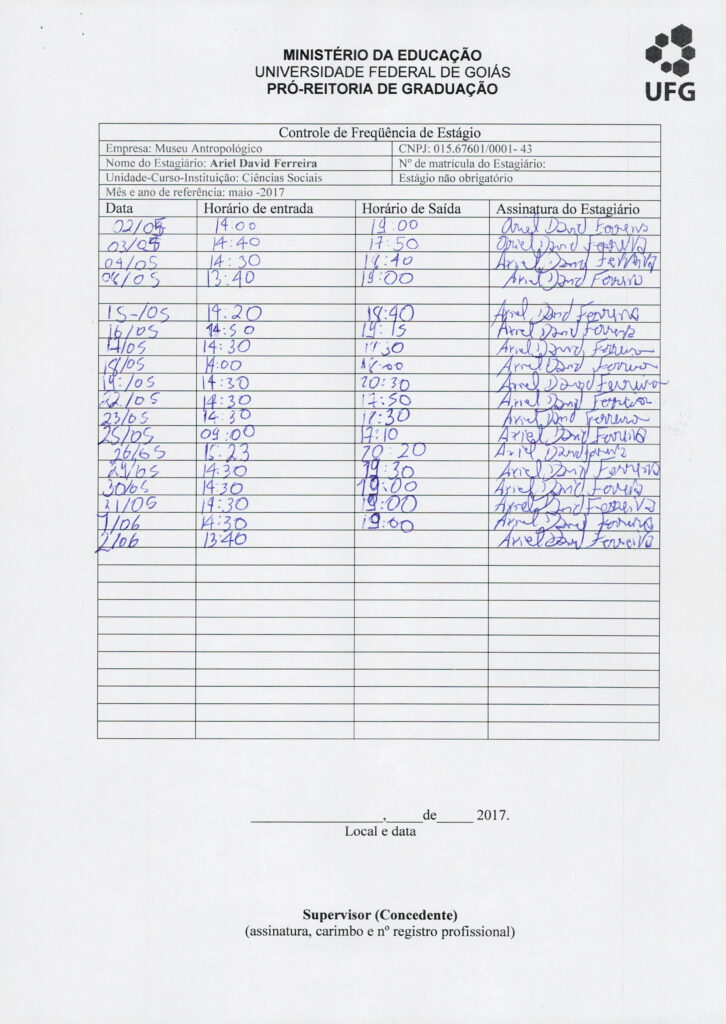 MINISTÉRIO DA EDUCAÇÃO
UNIVERSIDADE FEDERAL DE GOIÁS
PRÓ-REITORIA DE GRADUAÇÃO
UFG
Controle de Freqüência de Estágio
Empresa: Museu Antropológico CNPJ: 015.67601/0001- 43
Nome do Estagiário: Ariel David Ferreira Nº de matrícula do Estagiário:
Unidade-Curso-Instituição: Ciências Sociais Estágio não obrigatório
Mês e ano de referência: maio -2017
Data Horário de entrada Horário de Saída Assinatura do Estagiário
02/05 14:00 19:00 Ariel David Ferreira
03/05 14:40 17:50 Ariel David Ferreira
04/05 14:30 18:10 Ariel David Ferreira
08/05 13:40 19:00 Ariel David Ferreira
15-/05 14:20 18:40 Ariel David Ferreira
16/05 14:50 19:15 Ariel David Ferreira
17/05 14:30 Ariel David Ferreira
18/05 14:00 18:00 Ariel David Ferreira
19/05 14:30 20:30 Ariel David Ferreira
22/05 14:30 17:50 Ariel David Ferreira
23/05 14:30 18:30 Ariel David Ferreira
25/05 09:00 17:10 Ariel David Ferreira
26/05 15:23 20:20 Ariel David
29/05 14:30 19:30 Ariel David Ferreira
30/05 14:30 19:00 Ariel David Ferreira
31/05 14:30 19:00 Ariel David Ferreira
1/06 14:30 19:00 Ariel David Ferreira
2/06 13:40 Ariel David Ferreira
__________________,_____de_____ 2017.
Local e data
Supervisor (Concedente)
(assinatura, carimbo e nº registro profissional)